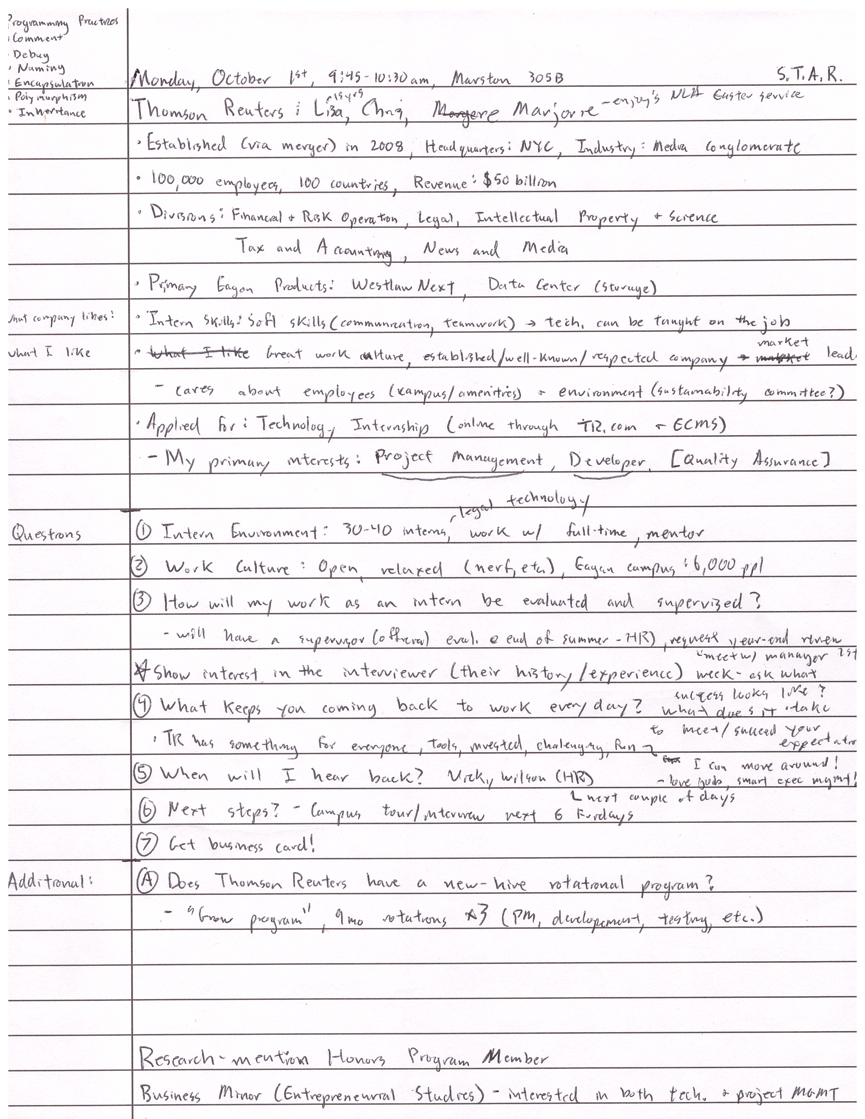 Programming Practices
· Comment
· Debug
· Naming
· Encapsulation
· Polymorphism
· Inheritance
Monday, October 1st, 9:45-10:30am, Marston 305B
S.T.A.R.
Thomson Reuters: Lisa, Chris, Marjorie - enjoy's NLA Easter service
· Established (via merger) in 2008, Headquarters: NYC, Industry: Media conglomerate
· 100,000 employees, 100 countries, Revenue: $50 billion
· Divisions: Financial + Risk Operation, Legal, Intellectual Property + Science
Tax and Accounting, News and Media
· Primary Eagan Products: Westlaw Next, Data Center (storage)
What company likes:
· Intern Skills: Soft skills (communication, teamwork) → tech. can be taught on the job
What I like
· What I like Great work culture, established/well-known/respected company market lead
- cares about employees (campus/amenities) + environment (sustainability committee?)
· Applied for: Technology Internship (online through TR.com + ECMS)
- My primary interests: Project Management, Developer, [Quality Assurance]
Questions
① Intern Environment: 30-40 interns, legal technology work w/ full-time, mentor
② Work Culture: Open, relaxed (nerf, etc.), Eagan campus: 6,000 ppl
③ How will my work as an intern be evaluated and supervized?
- will have a supervisor (offeral) eval. @ end of summer - HR), request year-end review
Show interest in the interviewer (their history/experience)
meet w/ manager 1st
week - ask what
success looks like?
what does it take
to meet/succeed your
expectation
④ What keeps you coming back to work every day?
· TR has something for everyone, tools, invested, challenging, fun
I can move around!
- love jobs, smart exec mgmt!
⑤ When will I hear back? Nicky Wilson (HR)
next couple of days
⑥ Next steps? - Campus tour/interview next 6 Fridays
⑦ Get business card!
Additional:
Ⓐ Does Thomson Reuters have a new-hire rotational program?
- "Grow program", 9mo rotations x3 (PM, development, testing, etc.)
Research - mention Honors Program Member
Business Minor (Entrepreneurial Studies) - interested in both tech. + project MGMT